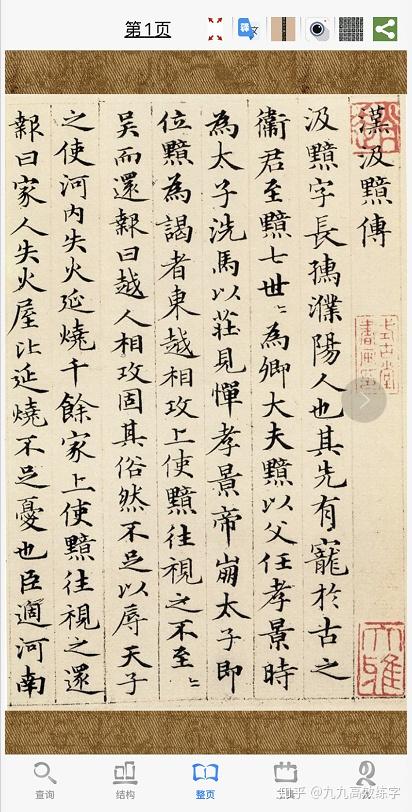 第1页
漢汲黯傳
汲黯字長孺濮陽人也其先有寵於古之
衛君至黯七世〻為卿大夫黯以父任孝景時
為太子洗馬以莊見憚孝景帝崩太子即
位黯為謁者東越相攻上使黯往視之不至〻
吳而還報曰越人相攻固其俗然不足以辱天子
之使河內失火延燒千餘家上使黯往視之還
報曰家人失火屋比延燒不足憂也臣過河南
查询
结构
整页
知乎 @九九高效练字